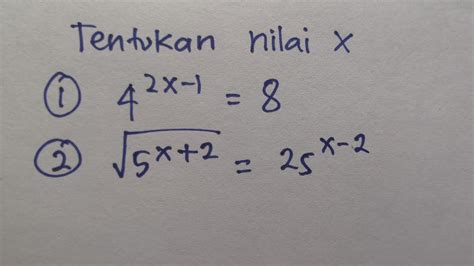 Tentukan nilai x
① 4^{2x-1} = 8
② √(5^{x+2}) = 25^{x-2}